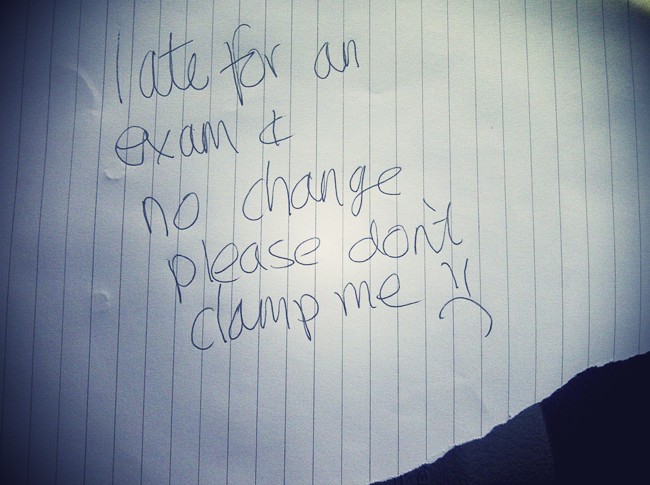 late for an
exam &
no change
please don't
clamp me :(